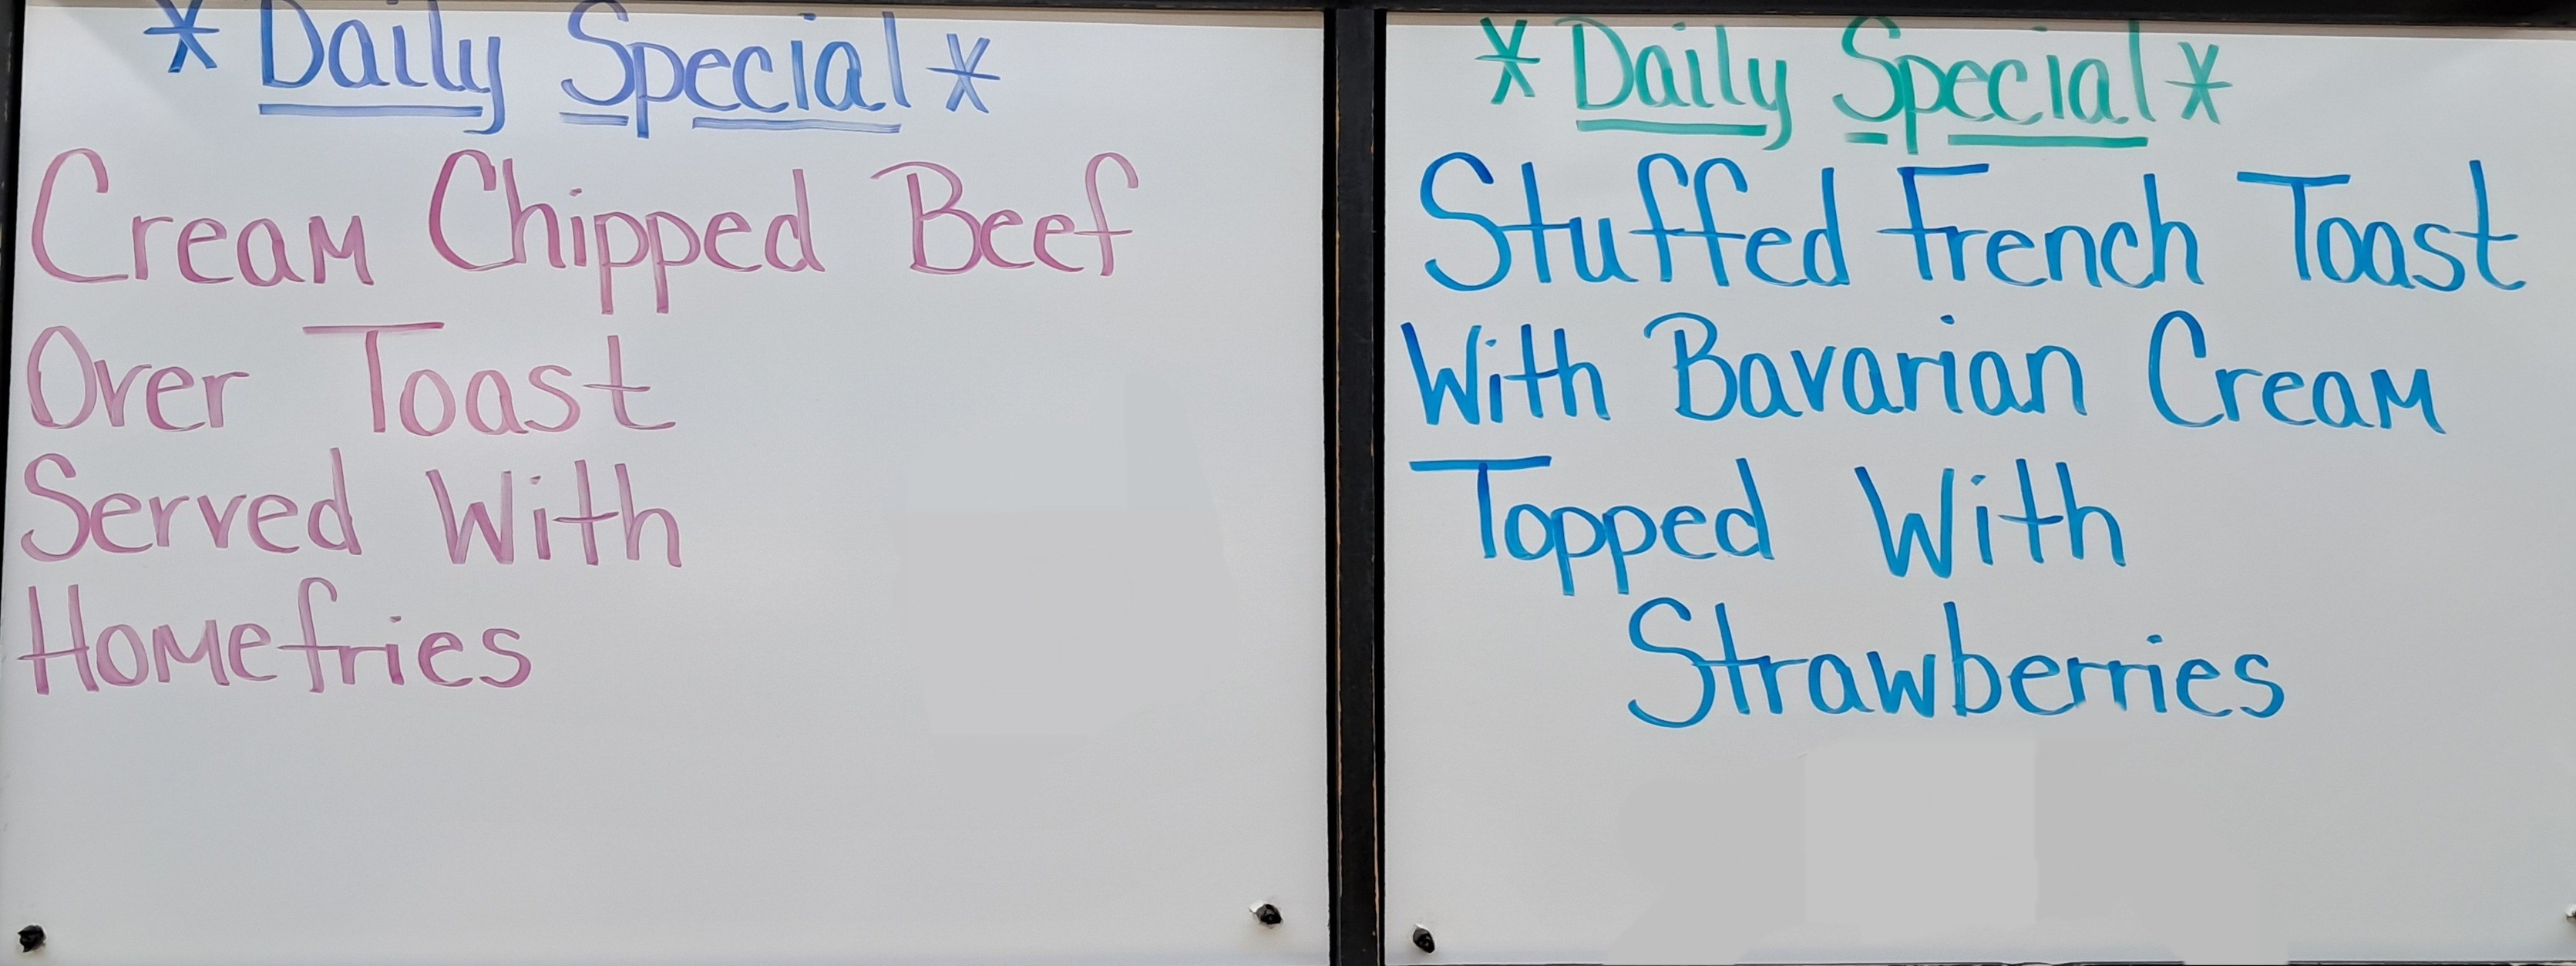 * Daily Special *
Cream Chipped Beef
Over Toast
Served With
Homefries
* Daily Special *
Stuffed French Toast
With Bavarian Cream
Topped With
Strawberries